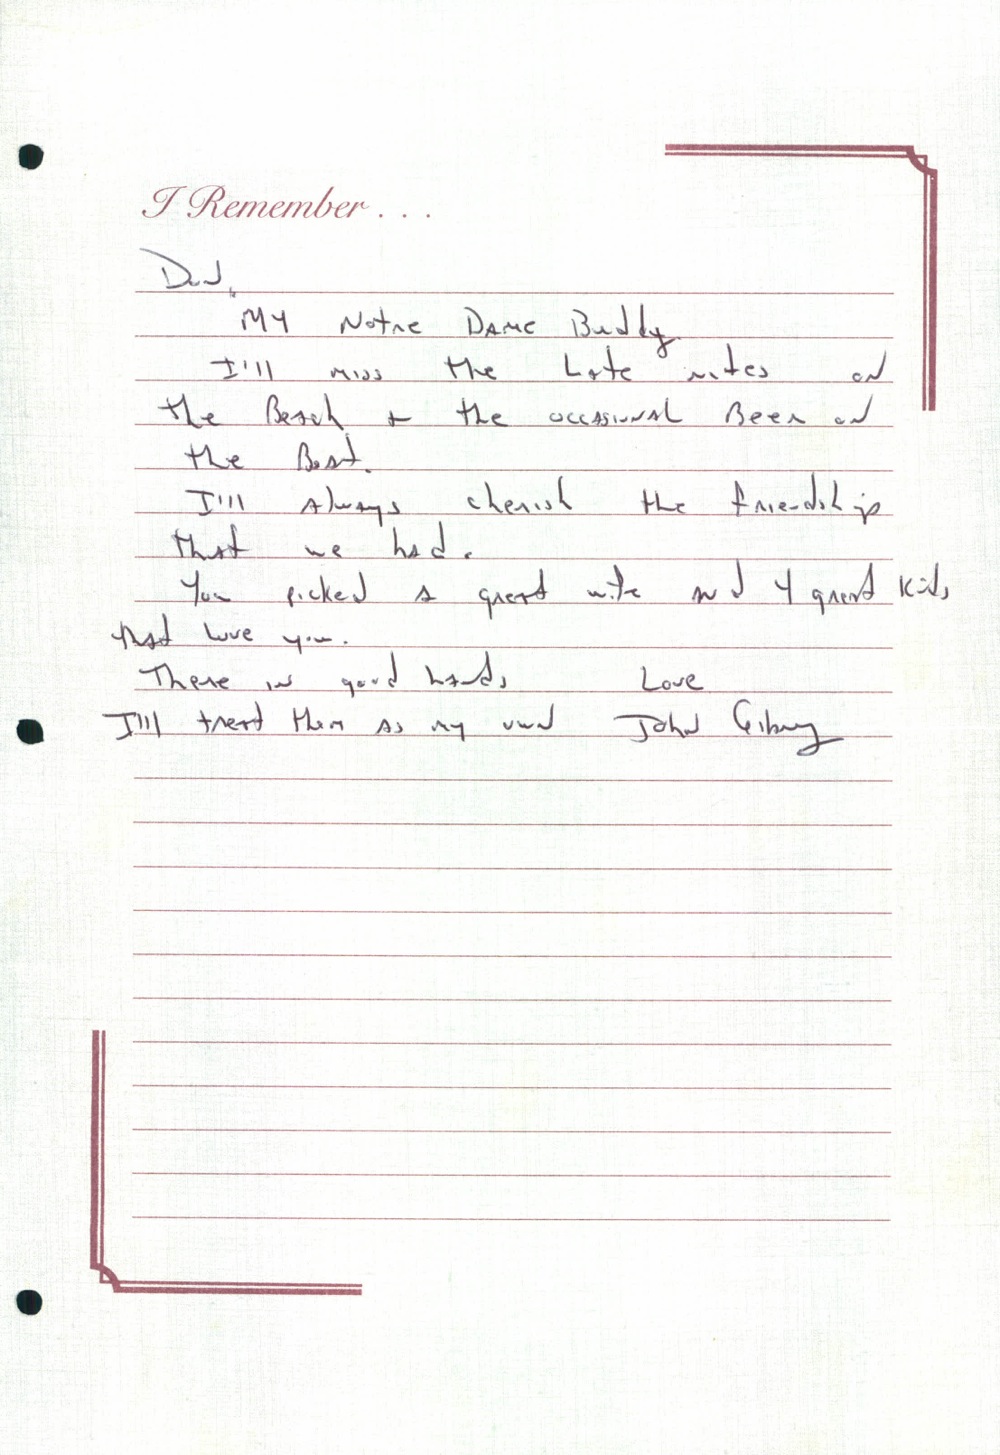 I Remember . . .
Dad,
My Notre Dame Buddy
I'll miss the Late nites on
the Beach + the occasional Beer on
the Boat.
I'll always cherish the friendship
that we had.
You picked a great wife and 4 great kids
that love you.
There in good hands Love
I'll treat them as my own John